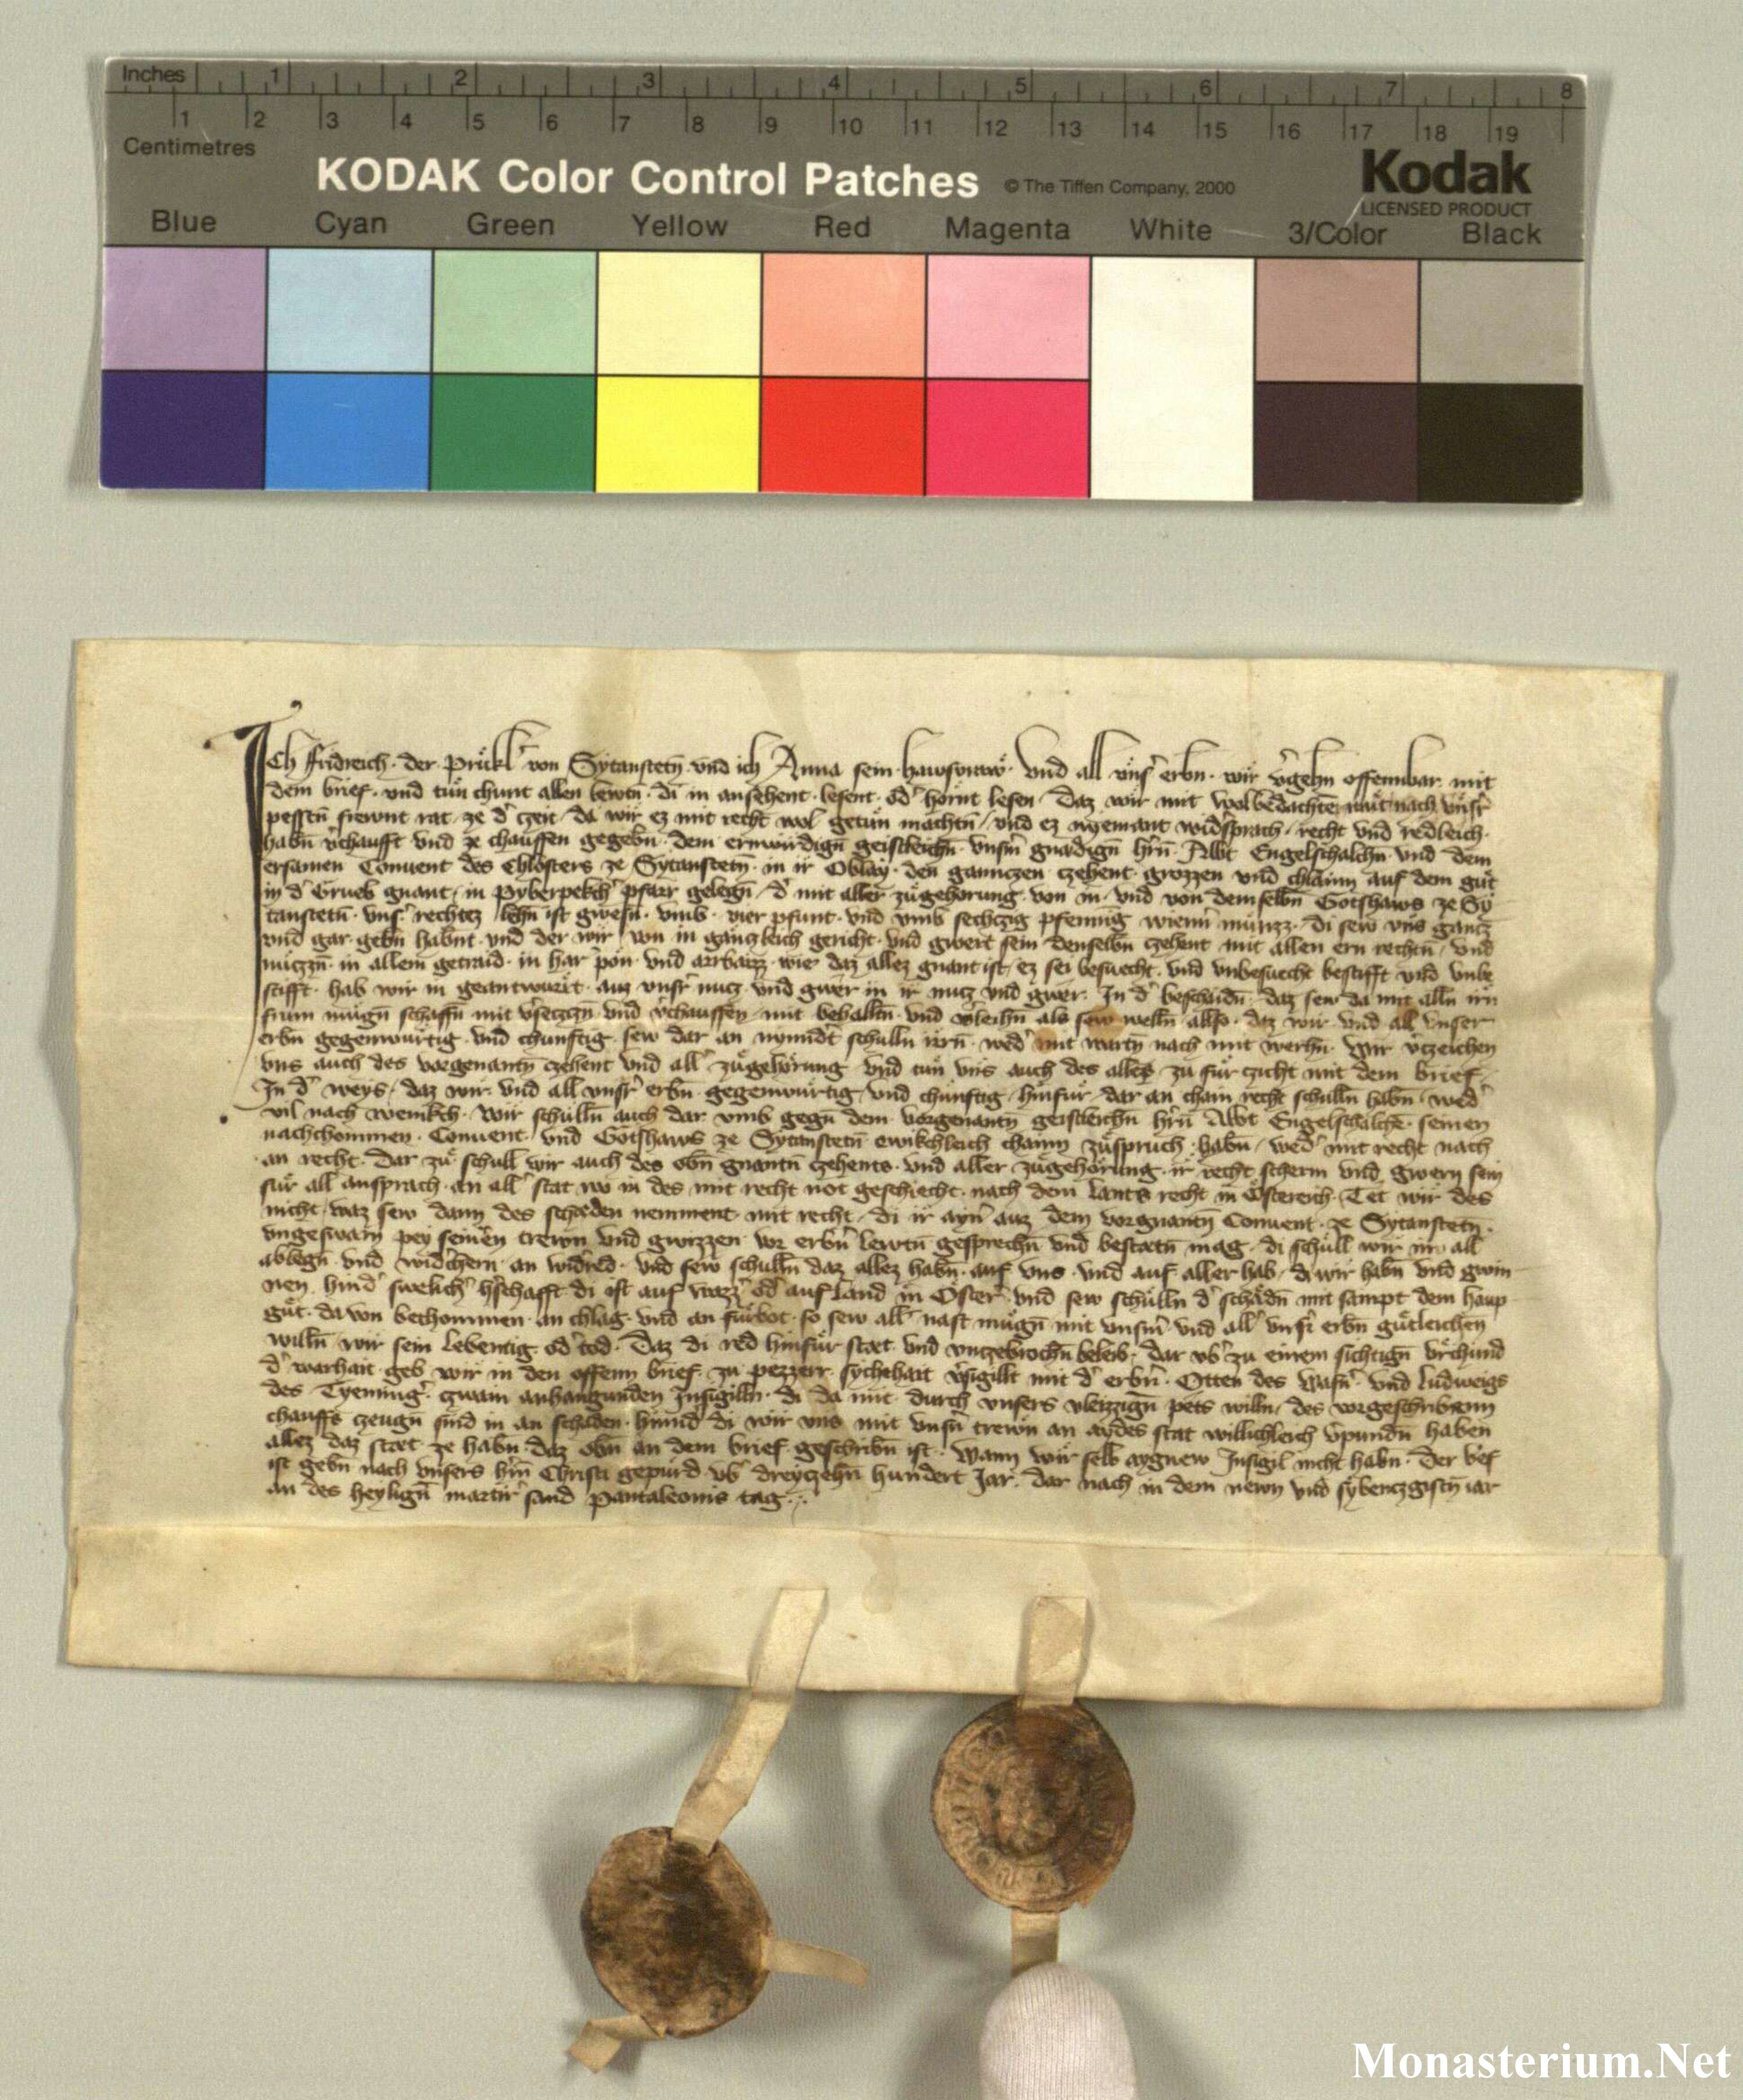 Inches 1 2 3 4 5 6 7 8
1 2 3 4 5 6 7 8 9 10 11 12 13 14 15 16 17 18 19
Centimetres
KODAK Color Control Patches © The Tiffen Company, 2000 Kodak
LICENSED PRODUCT
Blue Cyan Green Yellow Red Magenta White 3/Color Black
Ich fridreich · der Prukl von Sytanstetn̄ vnd ich Anna sein hawsvraw · Vnd all vnsˀ erbn · wir vˀgehn offennbar mit
dem brief · vnd tun chunt allen lewtn · di in ansehent · lesent · odˀ hornt lesen · daz wir mit wolbedachtem mut nach vnsˀr
pesstn̄ frewnt rat · ze dˀ czeit · da wir ez mit recht wol getun machtn̄ / vnd ez nyemant widˀsprach · recht vnd redleich ·
habn̄ vˀchaufft vnd ze chauffen gegebn̄ · dem erwirdign̄ geistleichn̄ vnsˀm gnadign̄ hˀrn̄ · Abbt Engelschalchn̄ · vnd dem
ersamen Conuent des Chlosters ze Sytanstetn̄ · in ir Oblay · den ganczen czehent · grozzen vnd chlainn auf dem gut
in dˀ Grueb gnant / in Pyberpekchˀ pfarr gelegn̄ / dˀ mit aller zugehorung · von in · vnd von demselbn̄ Gotshaws ze Sy
tanstetn̄ · vnsˀ rechtez lehn̄ ist gwesn̄ · vmb · vier pfunt · vnd vmb sechczig pfennig wiennˀ munzz · di sew vns gancz
vnd gar · gebn̄ habnt · vnd der wir von in ganczleich gericht · vnd gwert sein denselbn̄ czehent mit allen ern rechtn̄ / vnd
nuczzn̄ · in allem getraid · in har pon · vnd arrbaizz · wie daz allez gnant ist / ez sei besuecht · vnd vnbesuecht bestifft vnd vnbe
stifft · hab wir in geantwurt · auz vnsˀr nucz · vnd gwer in ir nucz vnd gwer · In dˀ beschaidn̄ · daz sew da mit alln̄ irn
frum mugn̄ schaffn̄ mit vˀseczn̄ vnd vˀchauffen · mit behaltn̄ · vnd vˀleihn̄ als sew welln̄ also · daz wir · vnd all vnser
erbn̄ gegenwurtig · vnd chunftig · sew dar an nymmˀ schulln̄ irrn̄ · wedˀ mit wartn̄ nach mit werhn̄ · Wir vˀczeichen
vns auch des vorgenantn̄ czehent vnd allˀ zugehorung vnd tun vns auch des allez · zu fur czicht mit dem brief ·
In dˀ weys / daz wir · vnd all vnsˀr erbn̄ · gegenwurtig · vnd chunftig · hinfur dar an chain recht schulln̄ habn̄ · wedˀ
vil nach wenikch · Wir schulln̄ auch dar vmb gegn̄ dem vorgenantn̄ geistleichn̄ hˀrn̄ Abbt Engelschalche · seinen
nachchommen · Conuent / vnd Gotshaws ze Sytanstetn̄ ewikchleich chainn zuspruch · habn̄ / wedˀ mit recht nach
an recht · Dar zu schull wir auch des obn̄ gnantn̄ czehents · vnd aller zugehorung · ir recht scherm vnd gwern sein
fur all ansprach · an allˀ stat wo in des mit recht not geschiecht · nach dem lants recht in Osterreich · Tet wir des
nicht / waz sew dann des schaden nemment · mit recht / di ir aynˀ auz dem vorgnantn̄ Conuent · ze Sytanstetn̄ ·
vngeswarn pey seinen trewn vnd gwizzen · vor erbn̄ lewtn̄ gesprechn̄ vnd bestaetn̄ mag · di schull wir in all
ablegn̄ · vnd widˀchern · an widˀred · vnd sew schulln̄ daz allez habn̄ · auf vns · vnd auf aller hab / di wir habn̄ vnd gwin
nen · hindˀ swelichˀ hˀschafft di ist auf wazzˀ odˀ auf land in Osterˀ · vnd sew schulln̄ dˀ schadn̄ mit sampt dem haup
gut · da von bechommen · an chlag · vnd an furbot · so sew allˀ nast mugn̄ mit vnsˀm · vnd allˀ vnsˀr erbn̄ gutleichen
willn̄ · wir sein lebentig odˀ tod · Daz di red hinfur staet · vnd vnczebrochn̄ beleib · dar vbˀ zu einem sichtign̄ vrchund
dˀ warhait · geb wir in den offenn brief · zu pezzerr sychˀhait vˀsigillt mit dˀ erbˀn · Otten des Wasnˀ · vnd Ludweigs
des Tyeningˀ · czwain anhangunden Insigilln̄ · di da mit durch vnsers vleizzign̄ pets willn̄ / des vorgeschribenn
chauffs czeugn̄ sind in an schaden · hinnd di wir vns mit vnsˀn trewn an aydes stat willichleich vˀpundn̄ haben
allez daz staet ze habn̄ · daz obn̄ an dem brief geschribn̄ ist · Wann wir selb aygnew Insigil nicht habn̄ · Der brief
ist gebn̄ nach vnsers hˀrn̄ Christi gepurd vbˀ dreyczehn̄ hundert Jar · dar nach in dem newn vnd sybenczgistn̄ iar
an des heylign̄ martrˀ sand Pantaleonis tag ·
Monasterium.Net